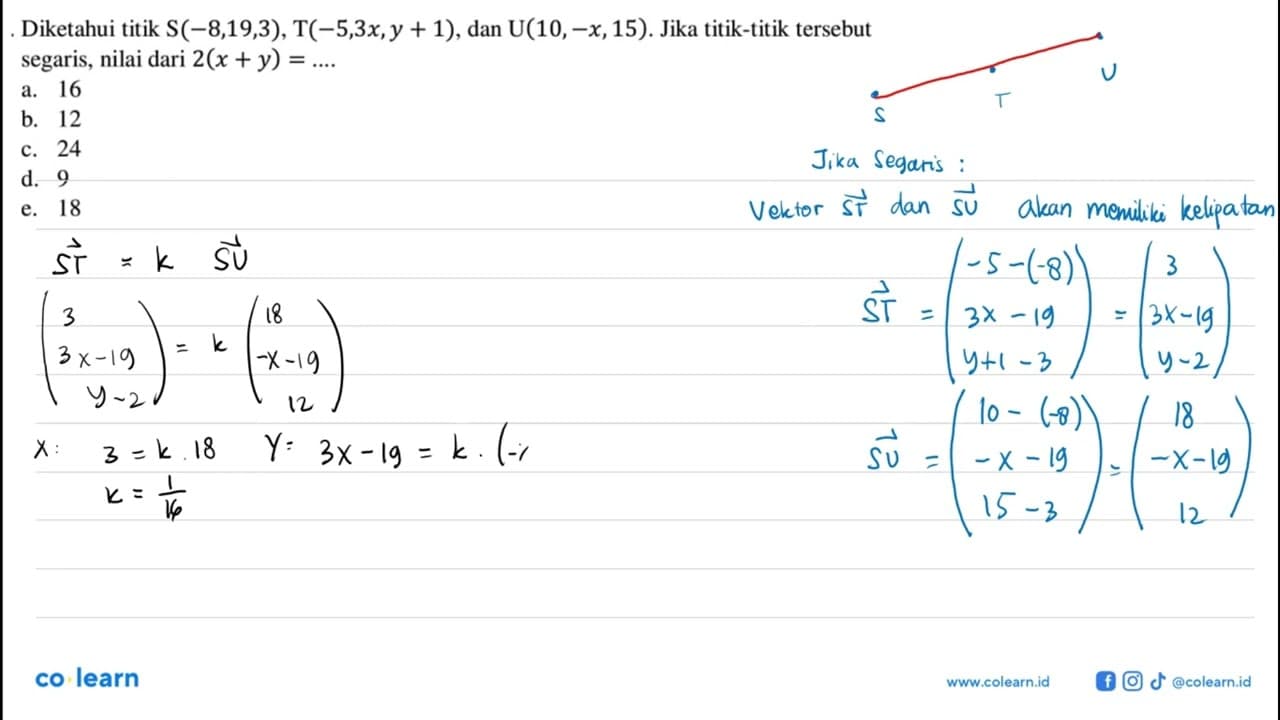 . Diketahui titik S(−8,19,3), T(−5,3x, y + 1), dan U(10, −x, 15). Jika titik-titik tersebut
segaris, nilai dari 2(x + y) = ....
a. 16
b. 12
c. 24
d. 9
e. 18
S
T
U
Jika Segaris :
Vektor ST dan SU akan memiliki kelipatan
ST = k SU
(3, 3x-19, y-2) = k (18, -x-19, 12)
X: 3 = k . 18 Y= 3x - 19 = k . (-x
k =
ST = (-5-(-8), 3x - 19, y+1 - 3) = (3, 3x-19, y-2)
SU = (10 - (-8), -x - 19, 15 - 3) = (18, -x-19, 12)
co learn
www.colearn.id
@colearn.id